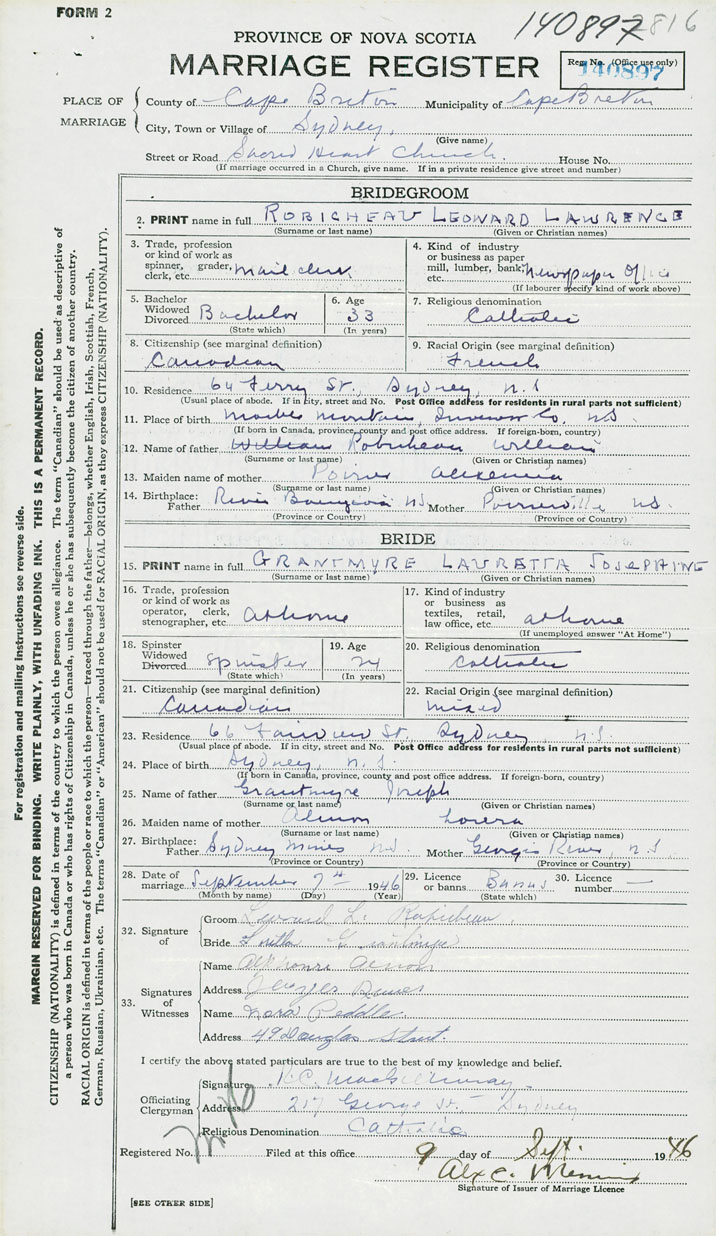 FORM 2
140897 2816
PROVINCE OF NOVA SCOTIA
MARRIAGE REGISTER
Reg. No. (Office use only)
140897
PLACE OF MARRIAGE
County of Cape Breton Municipality of Cape Breton
City, Town or Village of Sydney,
(Give name)
Street or Road Sacred Heart Church. House No.
(If marriage occurred in a Church, give name. If in a private residence give street and number)
BRIDEGROOM
2. PRINT name in full ROBICHEAU LEONARD LAWRENCE
(Surname or last name) (Given or Christian names)
3. Trade, profession or kind of work as spinner, grader, clerk, etc. mail clerk
4. Kind of industry or business as paper mill, lumber, bank, etc. Newspaper Office
(If labourer specify kind of work above)
5. Bachelor Widowed Divorced Bachelor
(State which)
6. Age 33
(In years)
7. Religious denomination
Catholic
8. Citizenship (see marginal definition)
Canadian
9. Racial Origin (see marginal definition)
French
10. Residence 64 Ferry St., Sydney, N.S
(Usual place of abode. If in city, street and No. Post Office address for residents in rural parts not sufficient)
11. Place of birth Marble Mountain, Inverness Co. N.S.
(If born in Canada, province, county and post office address. If foreign-born, country)
12. Name of father William Robicheau William
(Surname or last name) (Given or Christian names)
13. Maiden name of mother Poirier
(Surname or last name) (Given or Christian names)
14. Birthplace: Father River Bourgeois N.S. Mother Poirierville N.S.
(Province or Country) (Province or Country)
BRIDE
15. PRINT name in full GRANTMYRE LAURETTA JOSEPHINE
(Surname or last name) (Given or Christian names)
16. Trade, profession or kind of work as operator, clerk, stenographer, etc. at home
17. Kind of industry or business as textiles, retail, law office, etc. at home
(If unemployed answer "At Home")
18. Spinster Widowed Divorced spinster
(State which)
19. Age 24
(In years)
20. Religious denomination
Catholic
21. Citizenship (see marginal definition)
Canadian
22. Racial Origin (see marginal definition)
mixed
23. Residence 66 Fairview St. Sydney, N.S.
(Usual place of abode. If in city, street and No. Post Office address for residents in rural parts not sufficient)
24. Place of birth Sydney, N.S.
(If born in Canada, province, county and post office address. If foreign-born, country)
25. Name of father Grantmyre Joseph
(Surname or last name) (Given or Christian names)
26. Maiden name of mother Almon
(Surname or last name) (Given or Christian names)
27. Birthplace: Father Sydney Mines N.S. Mother Georges River, N.S.
(Province or Country) (Province or Country)
28. Date of marriage September 7th 1946
(Month by name) (Day) (Year)
29. Licence or banns Banns
(State which)
30. Licence number —
32. Signature of
Groom Leonard L. Robicheau.
Bride Grantmyre
33. Signatures of Witnesses
Name
Address Georges River
Name Nora Peddle.
Address 49 Douglas Street.
I certify the above stated particulars are true to the best of my knowledge and belief.
Officiating Clergyman
Signature
Address 217 George St. Sydney
Religious Denomination Catholic
Registered No. Filed at this office 9 day of Sept. 1946
Alex C.
Signature of Issuer of Marriage Licence
[SEE OTHER SIDE]
For registration and mailing instructions see reverse side.
MARGIN RESERVED FOR BINDING. WRITE PLAINLY, WITH UNFADING INK. THIS IS A PERMANENT RECORD.
CITIZENSHIP (NATIONALITY) is defined in terms of the country to which the person owes allegiance. The term "Canadian" should be used as descriptive of
a person who was born in Canada or who has rights of Citizenship in Canada, unless he or she has subsequently become the citizen of another country.
RACIAL ORIGIN is defined in terms of the people or race to which the person—traced through the father—belongs, whether English, Irish, Scottish, French,
German, Russian, Ukrainian, etc. The terms "Canadian" or "American" should not be used for RACIAL ORIGIN, as they express CITIZENSHIP (NATIONALITY).